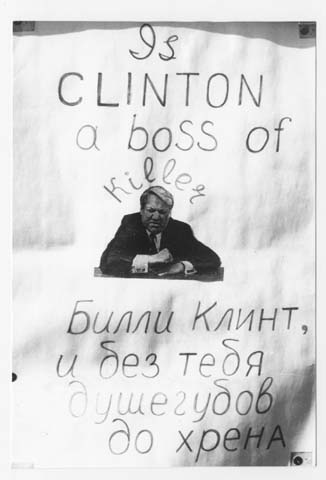 Is
CLINTON
a boss of
killer
Билли Клинт,
и без тебя
душегубов
до хрена